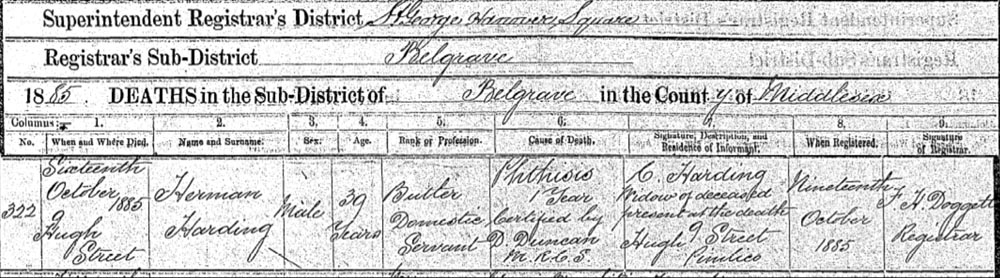 Superintendent Registrar's District St George Hanover Square
Registrar's Sub-District Belgrave
1885. DEATHS in the Sub-District of Belgrave in the County of Middlesex
Columns:— 1. 2. 3. 4. 5. 6. 7. 8. 9.
No. When and Where Died. Name and Surname. Sex. Age. Rank or Profession. Cause of Death. Signature, Description, and Residence of Informant. When Registered. Signature of Registrar.
322
Sixteenth
October
1885
9
Hugh
Street
Herman
Harding
Male
39
Years
Butler
Domestic
Servant
Phthisis
1 Year
Certified by
D. Duncan
M.R.C.S.
C. Harding
Widow of deceased
present at the death
9
Hugh Street
Pimlico
Nineteenth
October
1885
F. H. Doggett
Registrar